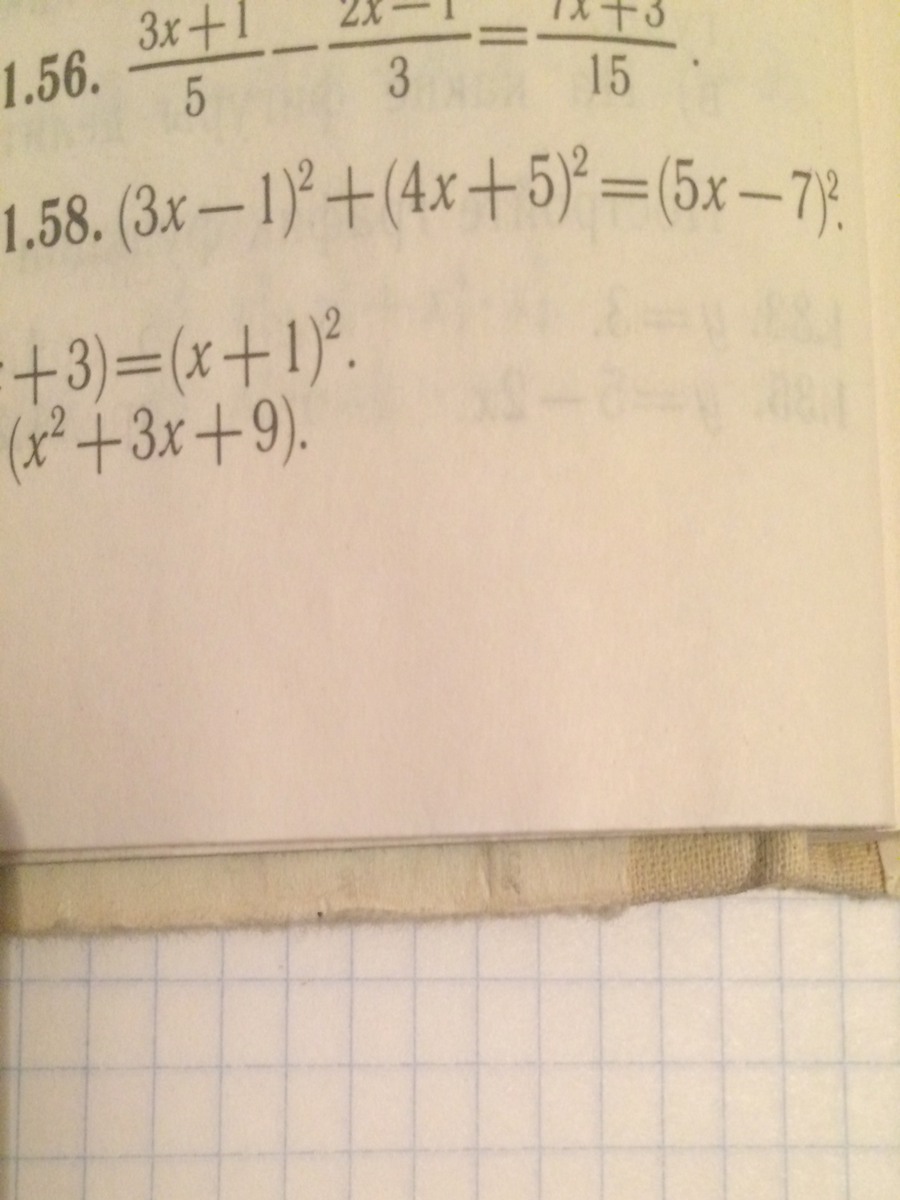 1.56. (3x+1)/5 − (2x−1)/3 = (7x+3)/15.
1.58. (3x−1)²+(4x+5)²=(5x−7)².
+3)=(x+1)².
(x²+3x+9).
1.33. y=3.
y=5−2x.